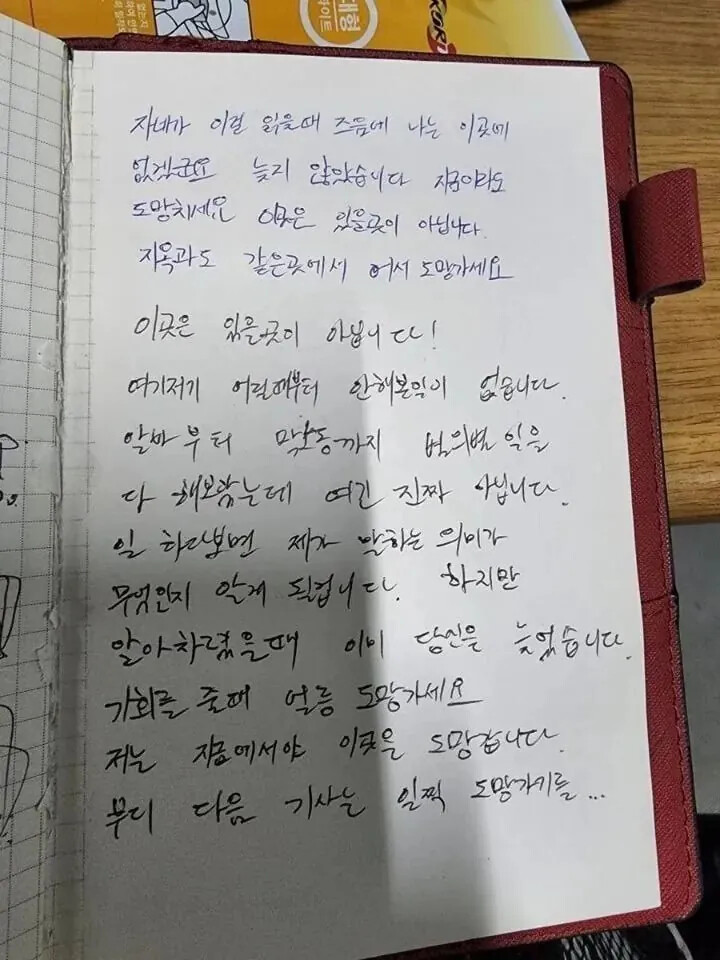 대형
KOR
자네가 이걸 읽을때 즈음에 나는 이곳에
없겠군요 늦지 않았습니다 지금이라도
도망치세요 이곳은 있을곳이 아닙니다.
지옥과도 같은곳에서 어서 도망가세요
이곳은 있을곳이 아닙니다!
여기저기 어릴때부터 안해본일이 없습니다.
알바부터 막노동까지 별의별 일을
다 해보았는데 여긴 진짜 아닙니다.
일 하다보면 제가 말하는 의미가
무엇인지 알게 될겁니다. 하지만
알아차렸을때 이미 당신은 늦었습니다.
기회를 줄때 얼릉 도망가세요
저는 지금에서야 이곳을 도망갑니다.
부디 다음 기사는 일찍 도망가기를...